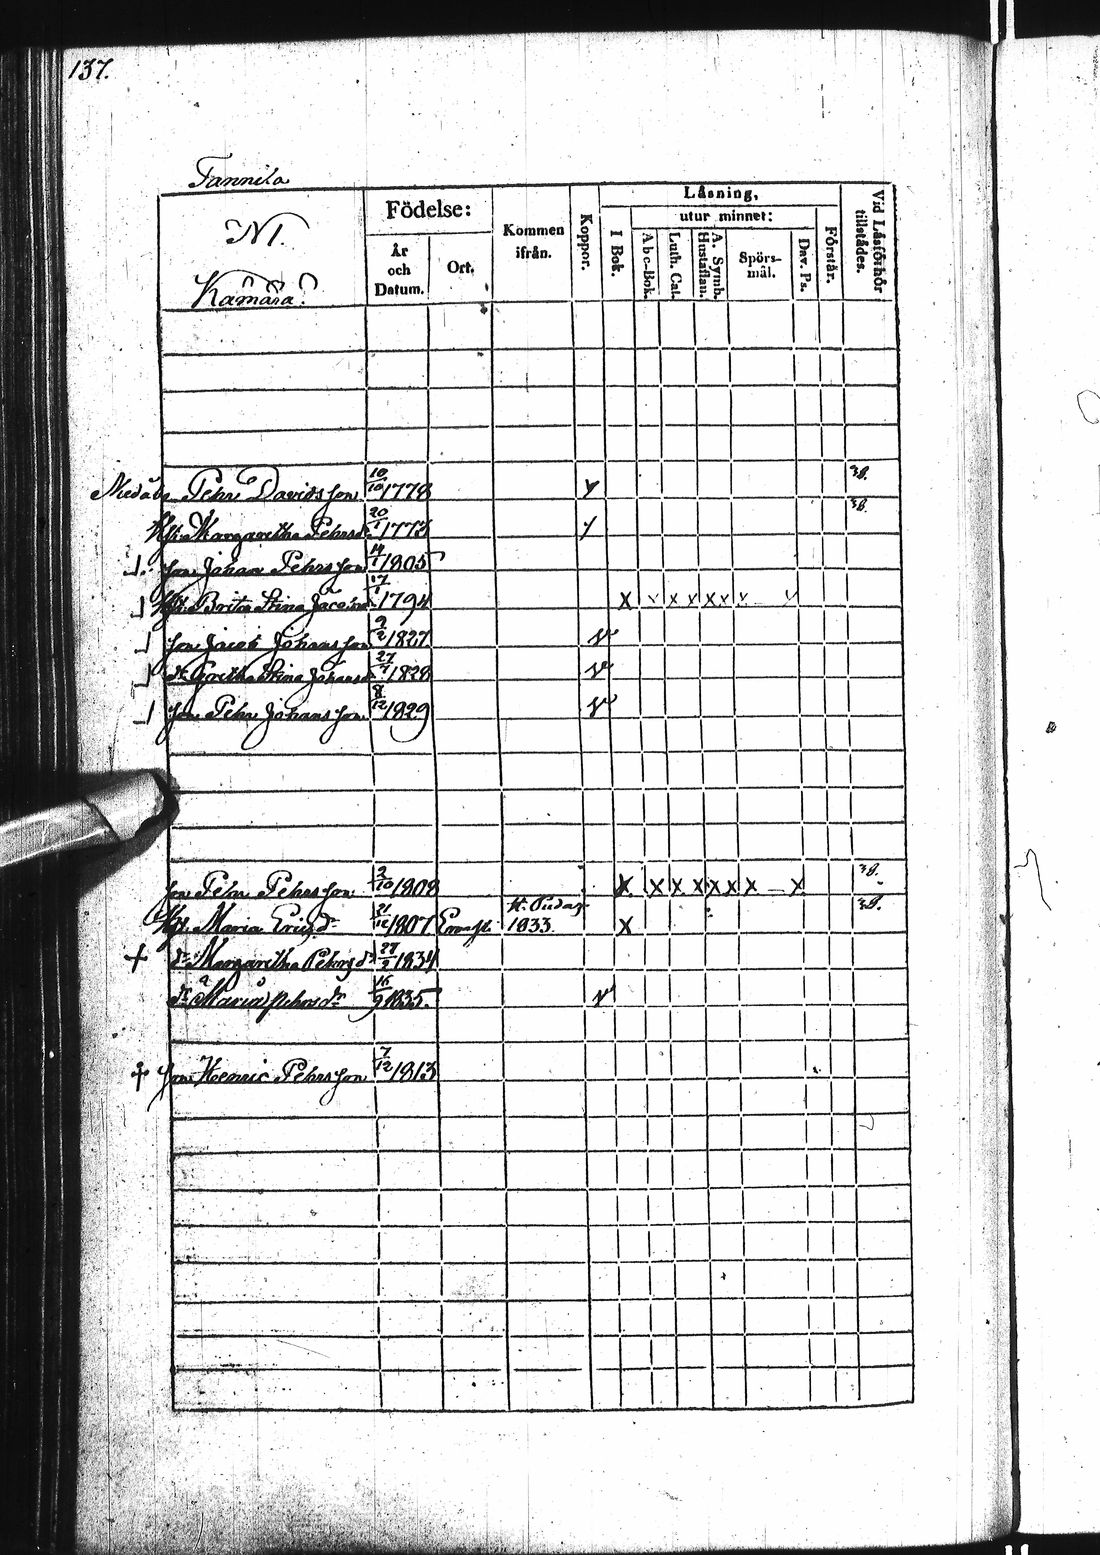 137.
Tannila
N 1.
Kamara
Födelse:
År och Datum.
Ort.
Kommen ifrån.
Koppor.
Läsning,
I Bok.
utur minnet:
Abc-Bok.
Luth. Cat.
A. Symb. Hustaflan.
Spörs-mål.
Dav. Ps.
Förstår.
Vid Läsförhör tillstädes.
Pehr Davidsson 10/10 1778 38.
Hu. Margaretha Pehrsd. 20/1 1773 38.
Son Johan Pehrsson 14/1 1805
Hu. Brita Stina Jacobsd. 17/1 1794 x v x x x v v v
Son Jacob Johansson 9/2 1827 v
dr Gretha Stina Johansd. 27/7 1828 v
Son Pehr Johansson 8/12 1829 v
Son Pehr Pehrsson 2/10 1808 x x x x x x x – x 38.
Hu. Maria Ericsdr 21/12 1807 1833 x 38.
+ dr Margaretha Pehrsdr 27/2 1834
dr Maria Pehrsdr 16/9 1835. v
+ Son Henric Pehrsson 7/12 1813